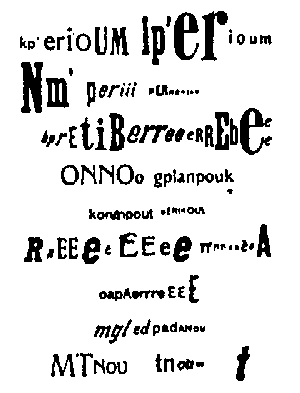 kp'erioUM lp'er ioum
Nm' periii PERnounum
bpretiBerreeerREbee
ONNOo gplanpouk
konmpout PERIKOUL
RrEEeeEEee A
oapAerrreEEE
mgl ed padANou
MTNou tnou t